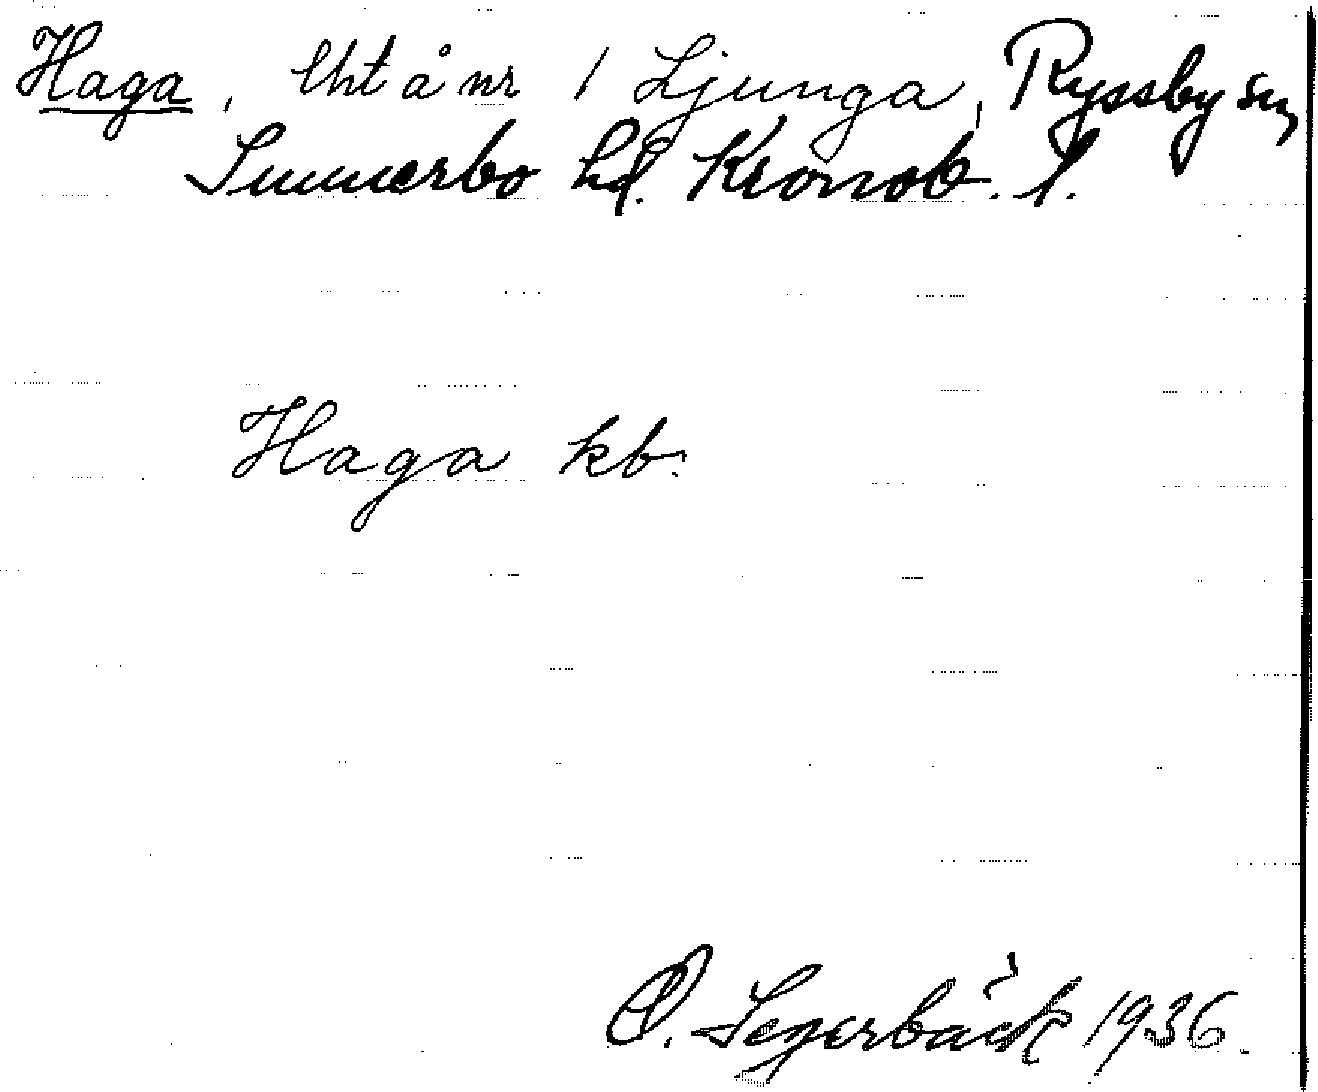 Haga, lht å nr 1 Ljunga, Ryssby sn,
Sunnerbo hd. Kronob. l.
Haga kb.
O. Segerbäck 1936.